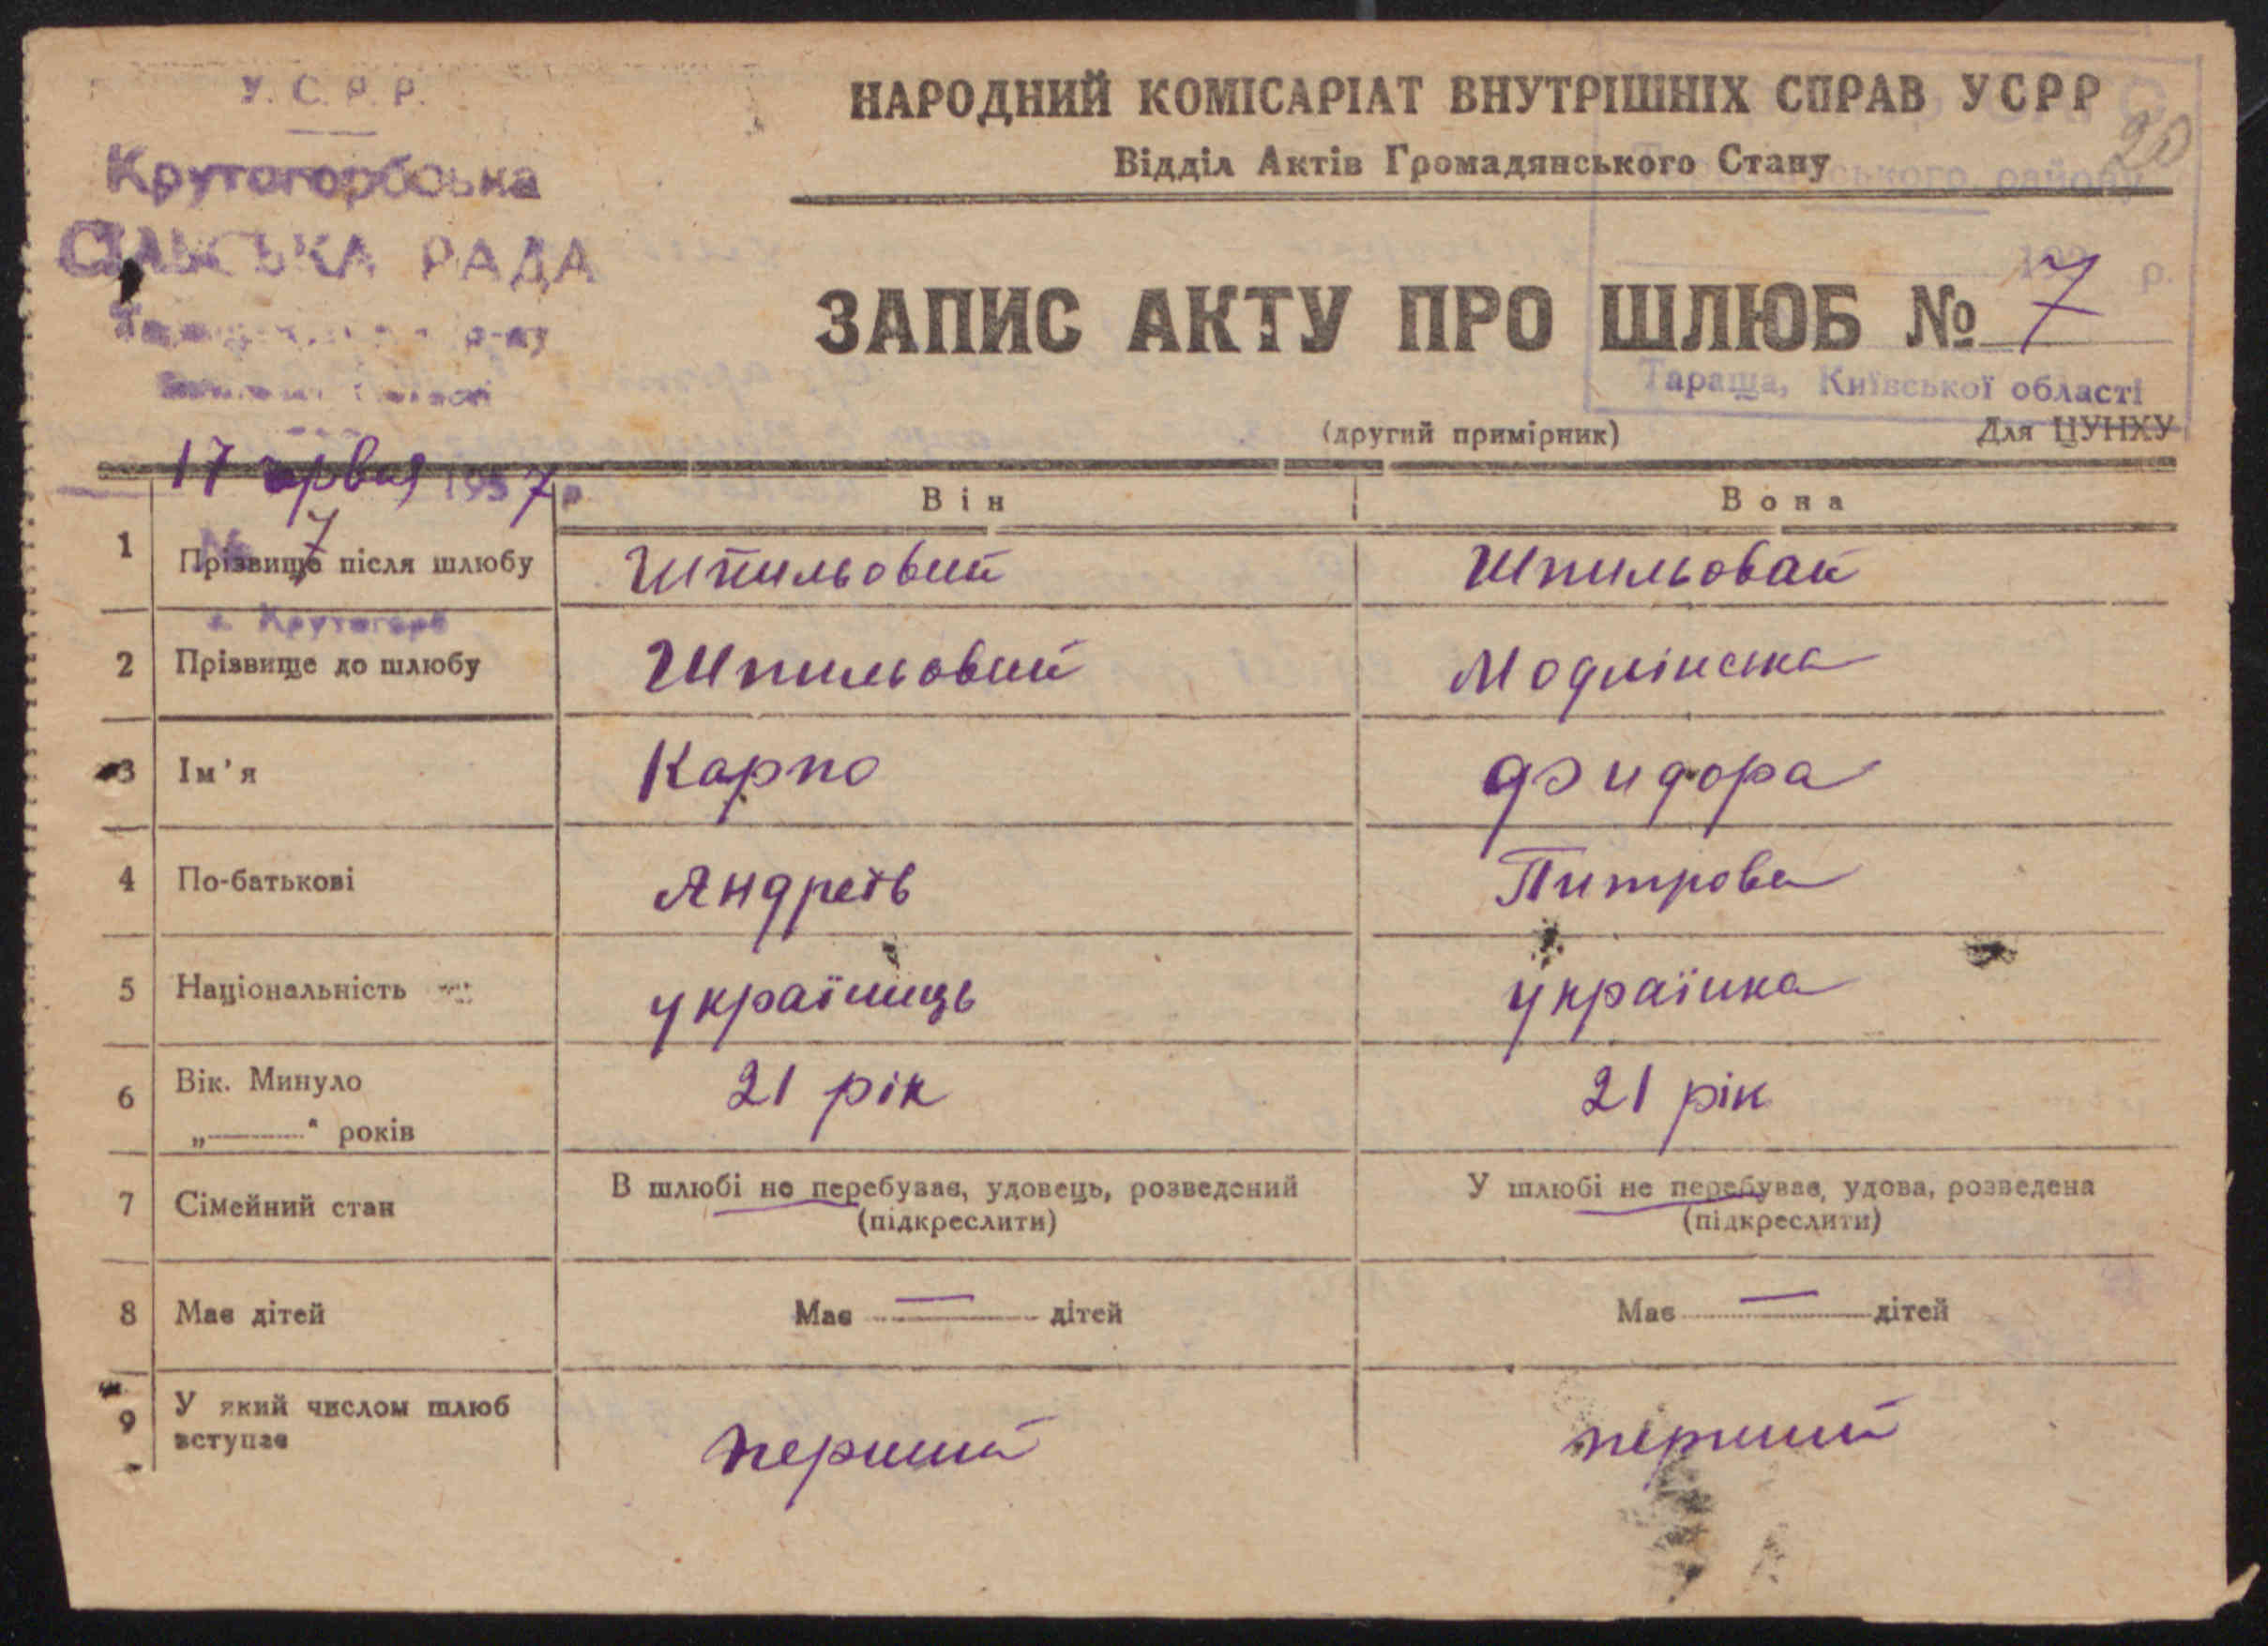 У. С. Р. Р.
Крутогорбська
СІЛЬСЬКА РАДА
р-ну
17 червня 1937 р.
№ 7
с. Крутогорб
НАРОДНИЙ КОМІСАРІАТ ВНУТРІШНІХ СПРАВ УСРР
20
Відділ Актів Громадянського Стану
району
193 р.
ЗАПИС АКТУ ПРО ШЛЮБ № 7
Тараща, Київської області
(другий примірник) Для ЦУНХУ
Він Вона
1 Прізвище після шлюбу Шпильовий Шпильовай
2 Прізвище до шлюбу Шпильовий Модлінська
3 Ім'я Карпо
4 По-батькові Андреів Питрова
5 Національність україниць українка
6 Вік. Минуло 21 рік 21 рік
„ “ років
7 Сімейний стан В шлюбі не перебуває, удовець, розведений У шлюбі не перебуває, удова, розведена
(підкреслити) (підкреслити)
8 Має дітей Має — дітей Має — дітей
9 У який числом шлюб вступає перший перший